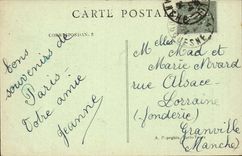 CARTE POSTALE
CORRESPONDANCE
bons
souvenirs de
Paris
Votre amie
Jeanne
Melles Mad et
Marie Nivard
rue Alsace-
Lorraine
(fonderie)
Granville
(Manche)